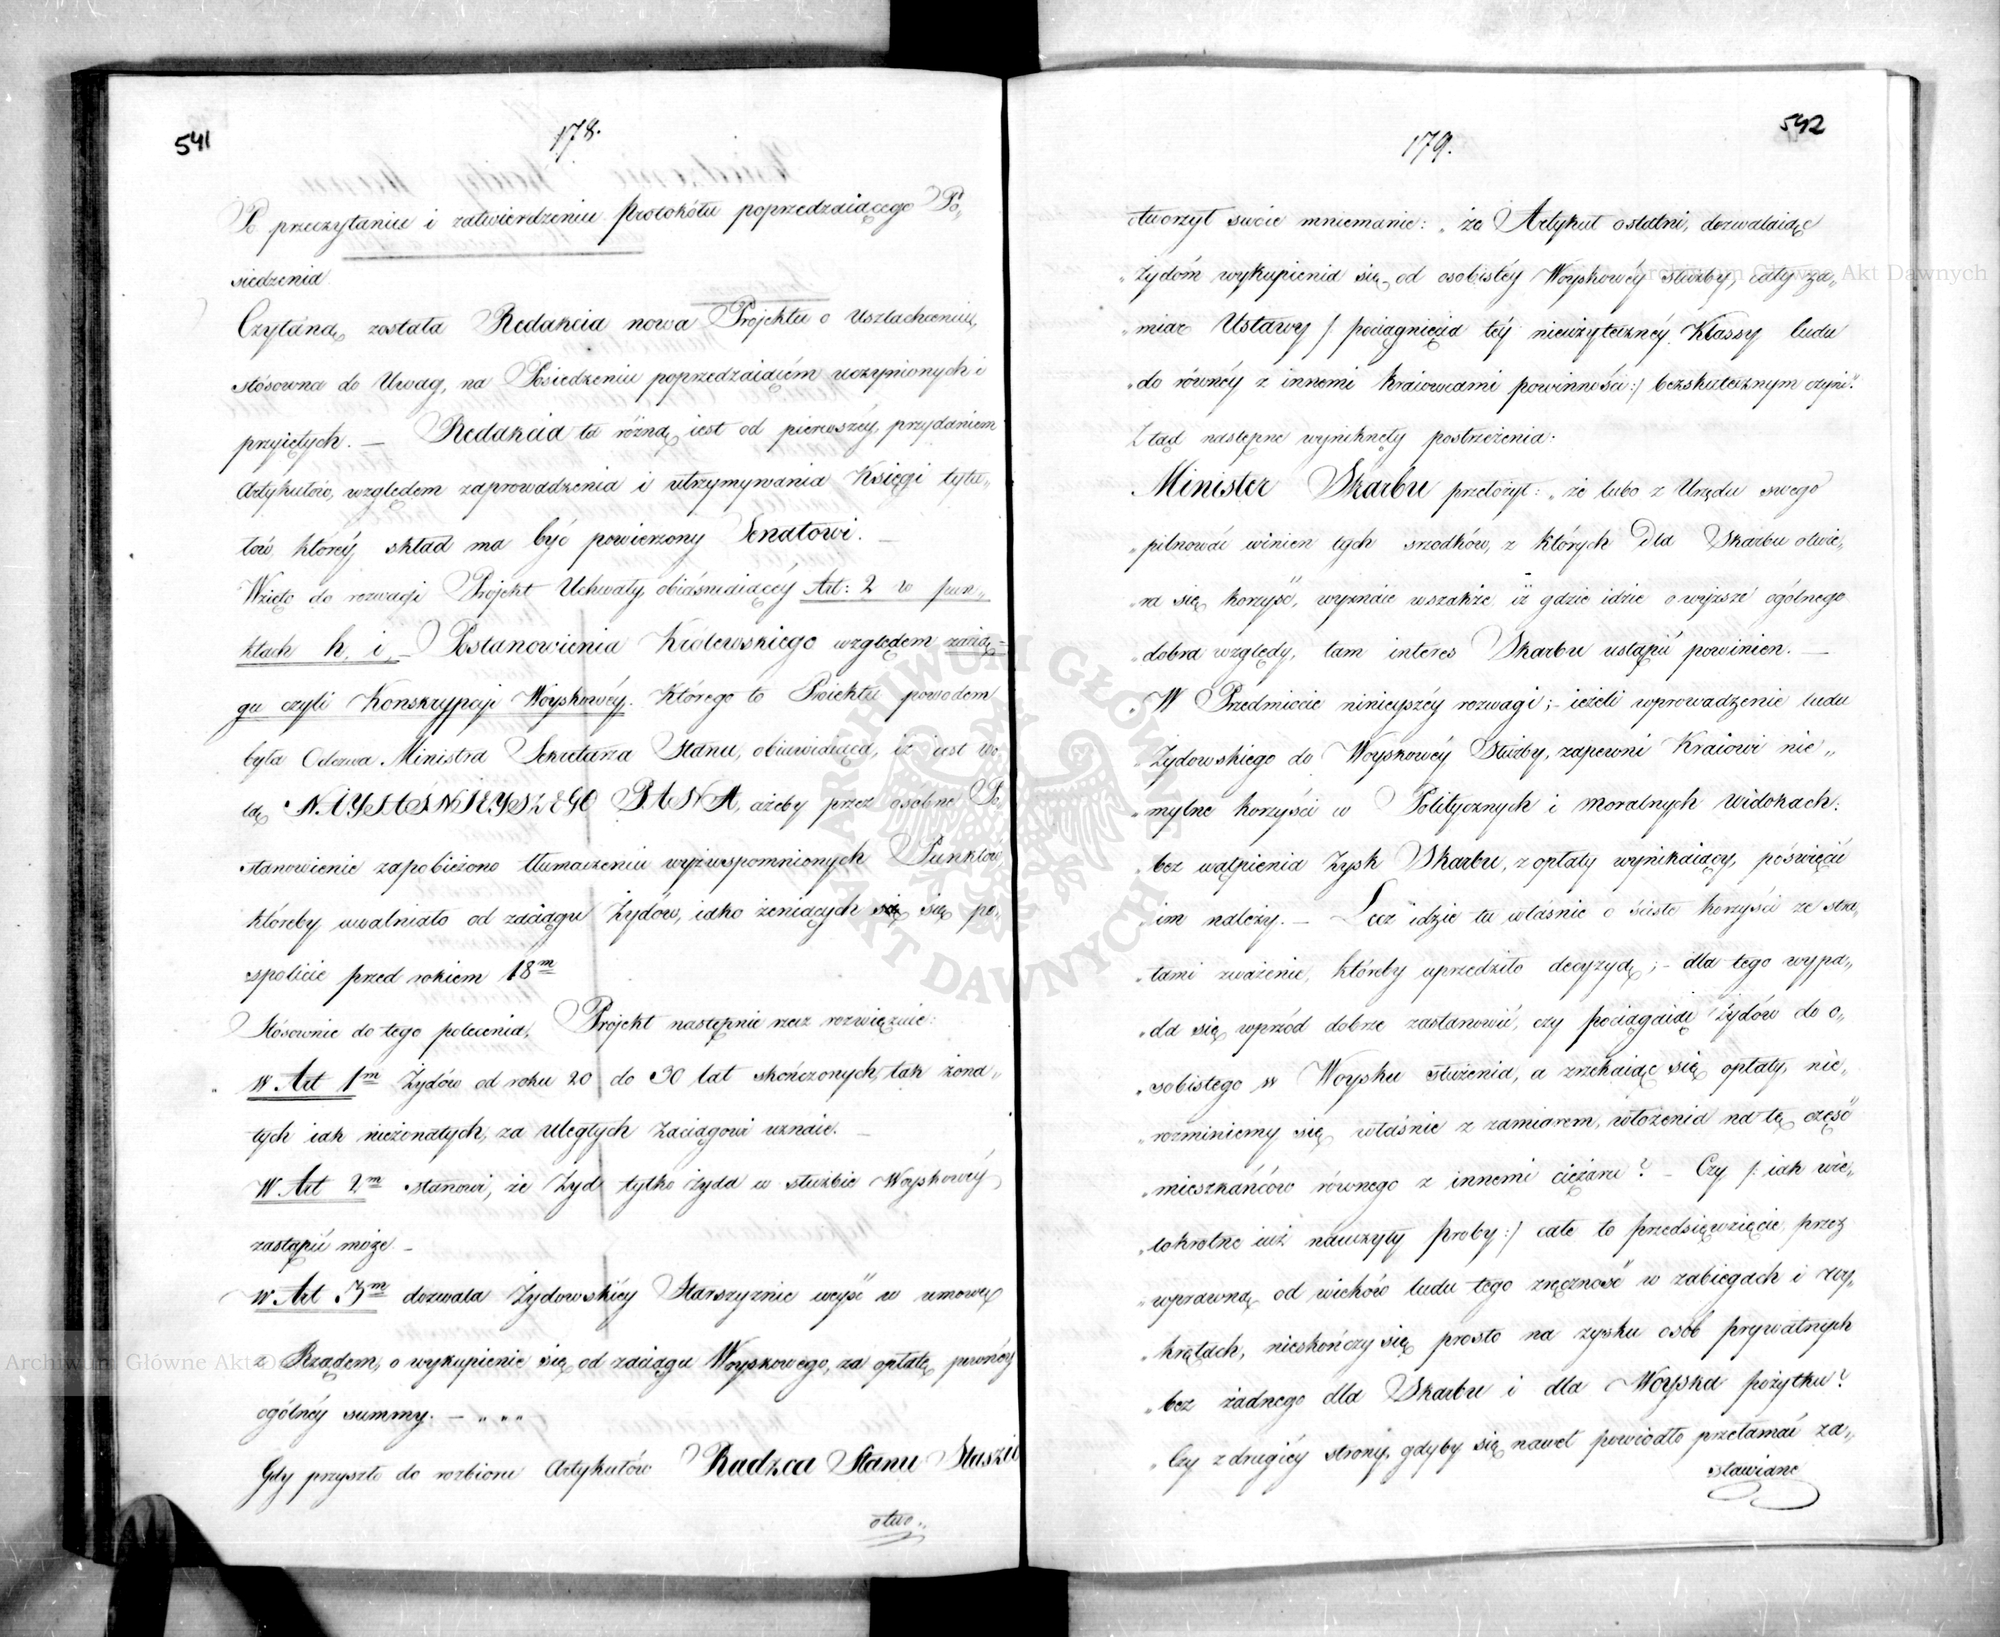 541
178.
Po przeczytaniu i zatwierdzeniu Protokółu poprzedzaiącego Po„
siedzenia
Czytaną została Redakcia nowa Projektu o Uszlachceniu,
stósowna do Uwag, na Posiedzeniu poprzedzaiącém uczynionych i
przyiętych. — Redakcia ta rożną iest od pierwszéy przydaniem
Artykułów, względem zaprowadzenia i utrzymywania Księgi tytu„
łów któréy skład ma być powierzony Senatowi. —
Wzięto do rozwagi Projekt Uchwały obiaśniaiącéy Art: 2 w pun„
ktach h. i. Postanowienia Królewskiego względem zacią=
gu czyli Konskrypcji Woyskowéy. Którego to Proiektu powodem
była Odezwa Ministra Sekretarza Stanu, obiawiaiąca, iż iest wo„
lą NAYIAŚNIEYSZEGO PANA, ażeby przez osobne Po„
stanowienie zapobieżono tłumaczeniu wyżwspomnionych Punktów,
któreby uwalniało od zaciągu Żydów, iako żeniących się się po„
spolicie przed rokiem 18m
Stósownie do tego polecenia, Projekt następnie rzecz rozwięzuie:
w Art 1m Żydów od roku 20 do 30 lat skończonych, tak żona„
tych iak nieżonatych, za uległych Zaciągowi uznaie. —
W Art 2m stanowi, że Żyd tylko żyda w służbie Woyskowéy
zastąpić może —
w Art 3m dozwala Żydowskiéy Starszyznie weyść w umowę
z Rządem, o wykupienie się od zaciągu Woyskowego, za opłatą pewnéy
ogólnéy summy. — „ „ „
Gdy przyszło do rozbioru Artykułów Radzca Stanu Staszic
otwo„
542
179.
otworzył swoie mniemanie: „że Artykuł ostatni, dozwalaiąc
„Żydóm wykupienia się od osobistéy Woyskowéy służby, cały za„
„miar Ustawy /: pociągnięcia téy nieużytecznéy Klassy ludu
„do równéy z innemi kraiowcami powinności :/ bezskutecznym czyni".
Ztąd następne wyniknęły postrzeżenia:
Minister Skarbu przełożył: „że lubo z Urzędu swego
„pilnować winien tych srzodków, z których dla Skarbu otwie„
„ra się korzyść, wyznaie wszakże iż gdzie idzie o wyższe ogólnego
„dobra względy, tam interes Skarbu ustąpić powinien. —
„W Przedmiocie ninieyszéy rozwagi; ieżeli wprowadzenie ludu
„Żydowskiego do Woyskowéy Służby, zapewni Kraiowi nie„
„mylne korzyści w Politycznych i moralnych widokach:
„bez wątpienia Zysk Skarbu, z opłaty wynikaiący, poświęcić
„im należy. — Lecz idzie tu właśnie o ścisłe korzyści ze stra„
„tami zważenie, któreby uprzedziło decyzyą; — dla tego wypa„
„da się wprzód dobrze zastanowić, czy pociągaiąc Żydów do o„
„sobistego w Woysku służenia, a zrzekaiąc się opłaty, nie„
„rozminiemy się właśnie z zamiarem, włożenia na tę część
„mieszkańców równego z innemi ciężaru? — Czy /: iak wie„
„lokrotne iuż nauczyły proby :/ całe to przedsięwzięcie przez
„wprawną od wieków ludu tego zręczność w zabiegach i wy„
„krętach, nieskończy się prosto na zysku osób prywatnych
„bez żadnego dla Skarbu i dla Woyska pożytku?
„Czy z drugiéy strony, gdyby się nawet powiodło przełamać za„
stawiane